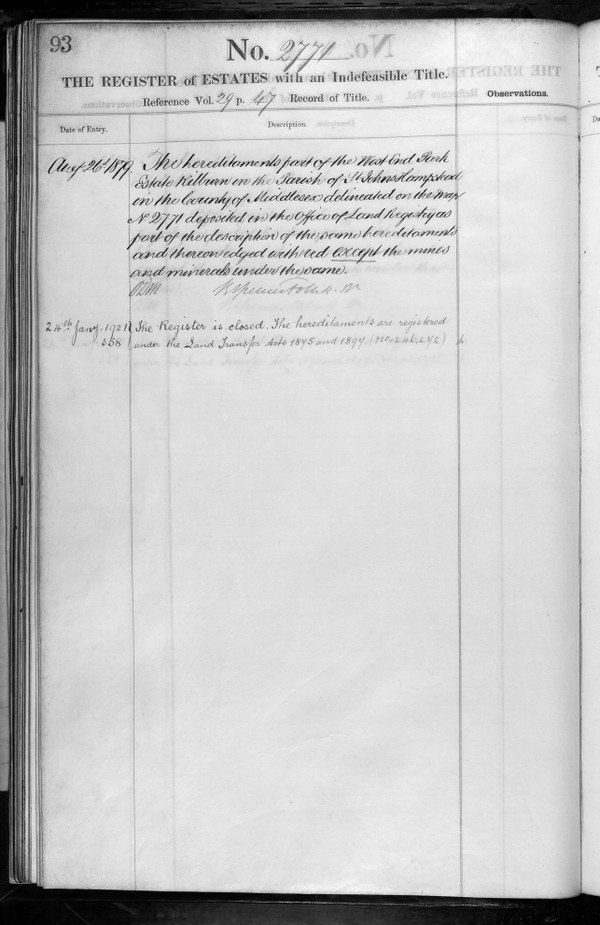 93
No. 2771
THE REGISTER of ESTATES with an Indefeasible Title.
Reference Vol. 29 p. 47 Record of Title.
Observations.
Date of Entry.
Description.
Augt 26th 1879
The hereditaments part of the West End Park
Estate Kilburn in the Parish of St Johns Hampstead
in the County of Middlesex delineated on the Map
No 2771 deposited in the Office of Land Registry as
part of the description of the same hereditaments
and thereon edged with red except the mines
and minerals under the same.
24th Jany. 1921
The Register is closed. The hereditaments are registered
558
under the Land Transfer Acts 1875 and 1897 (No. 246,242)